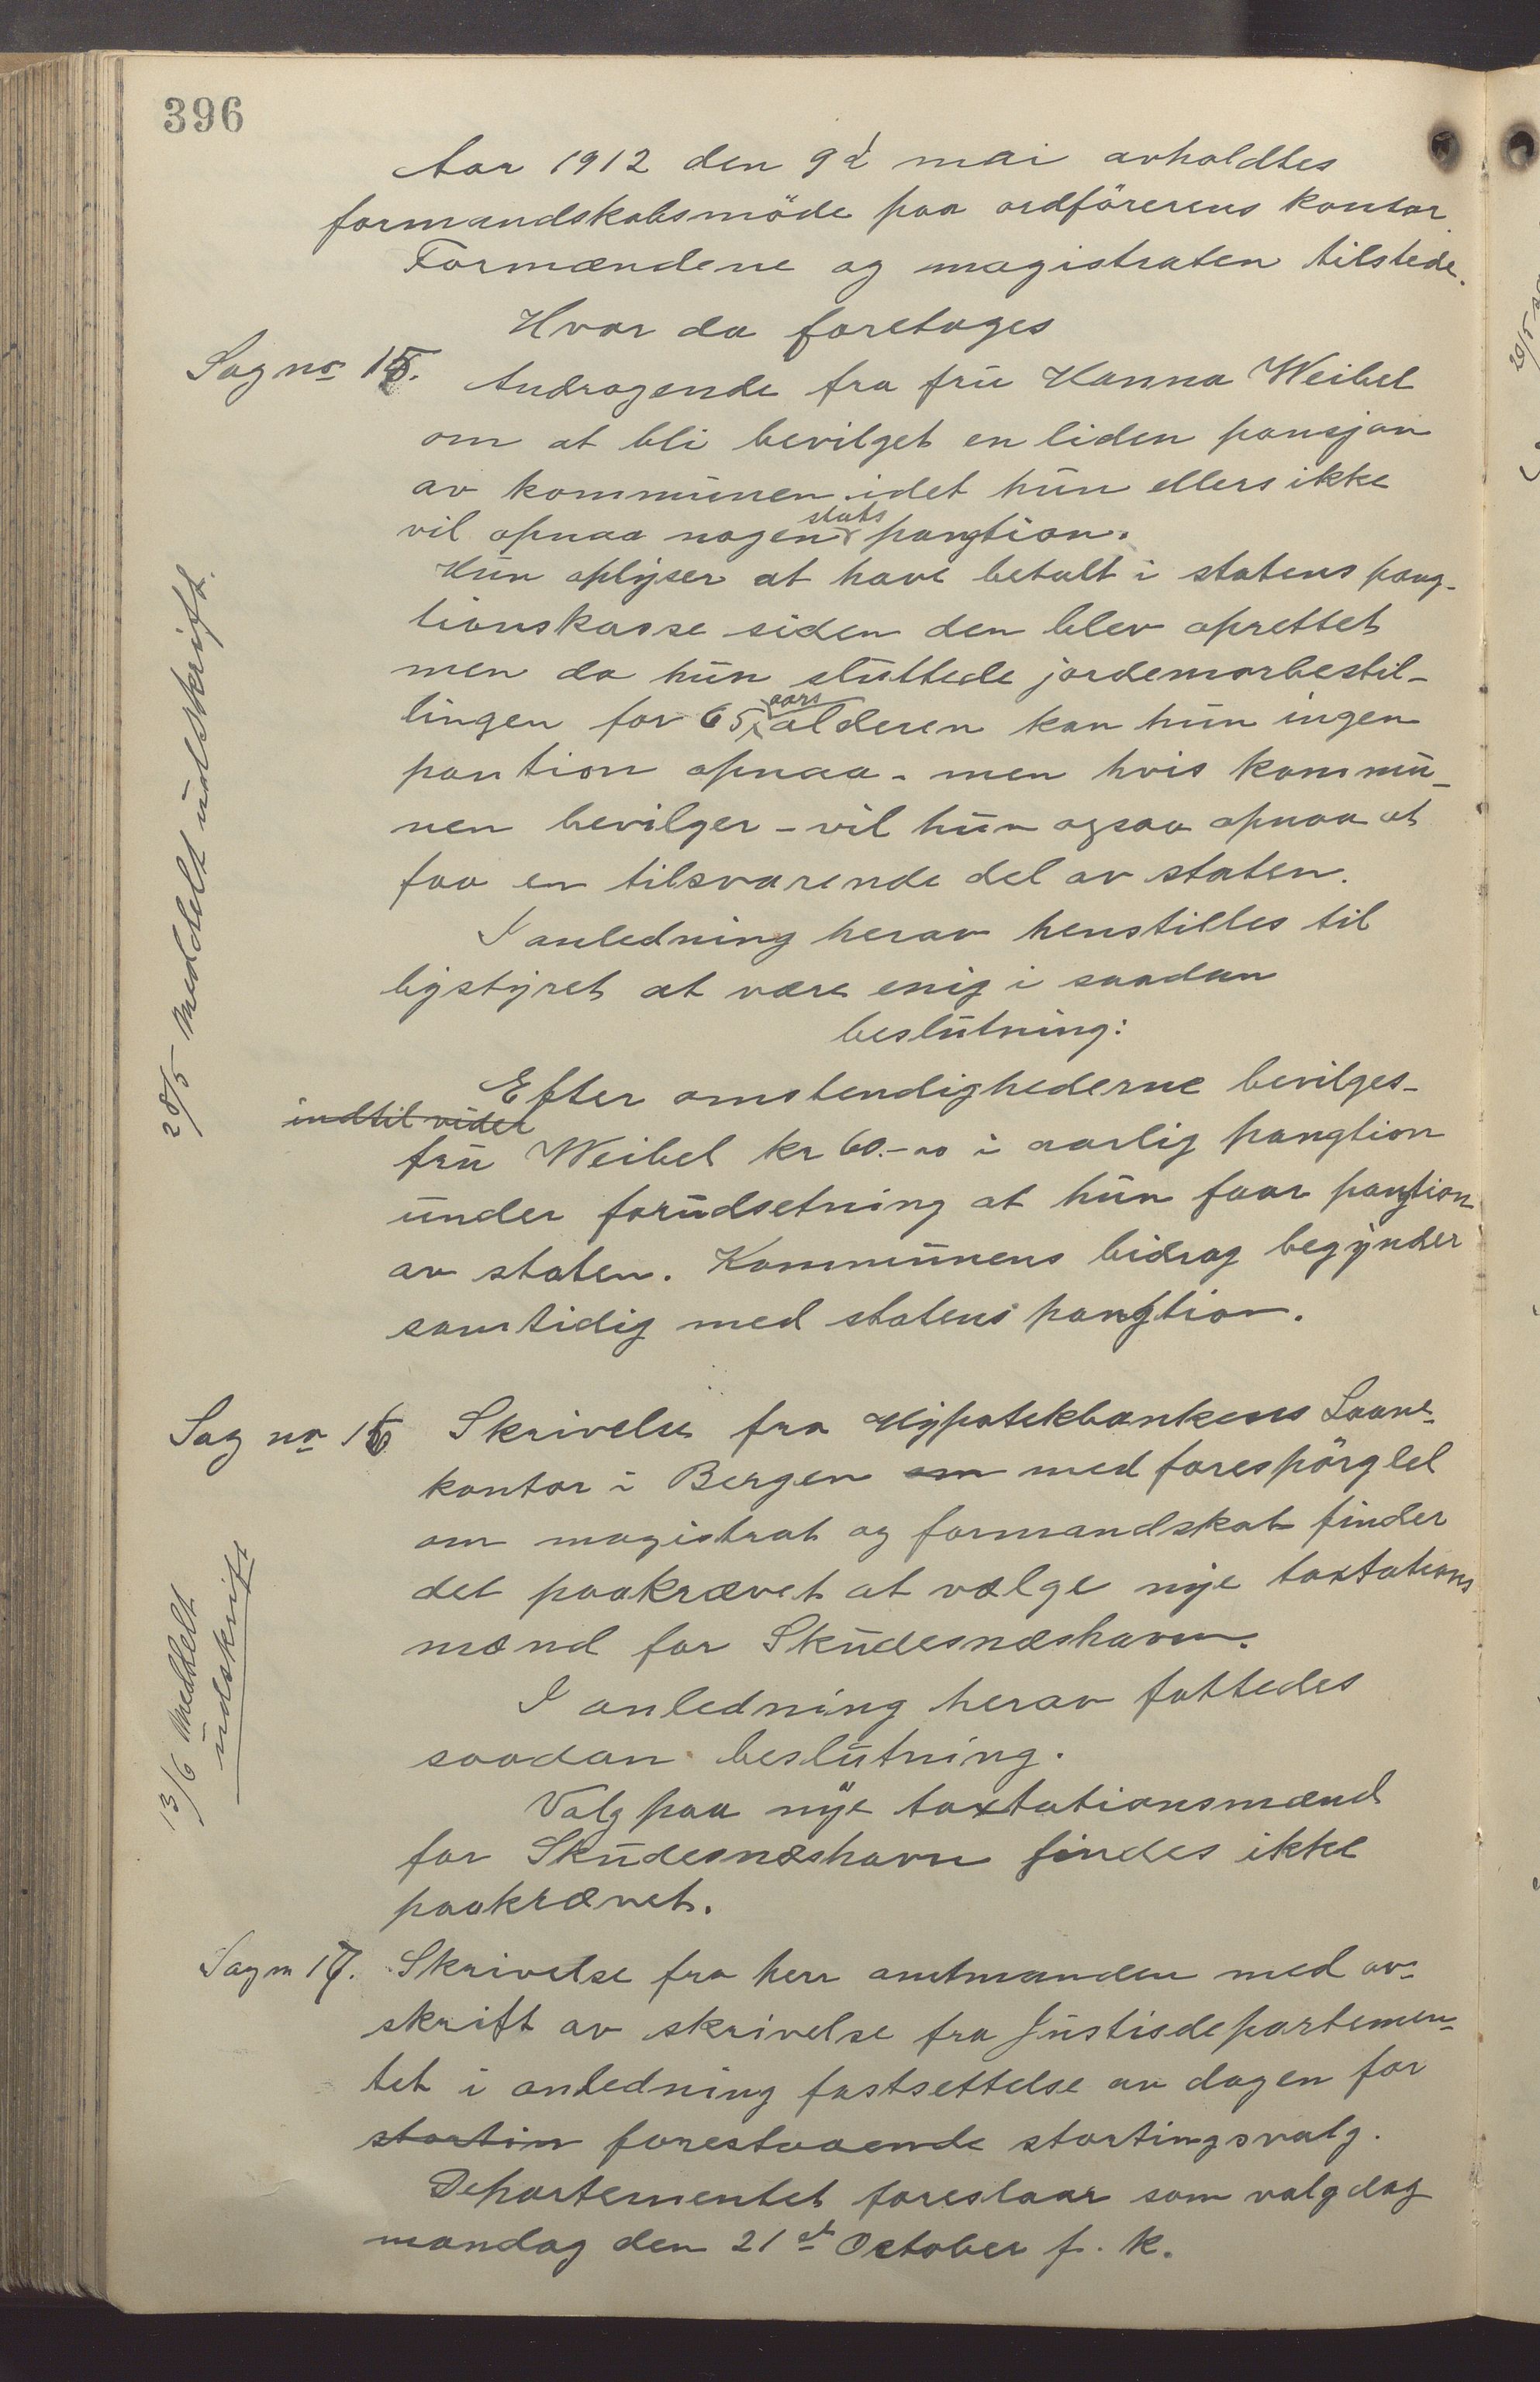 396
Aar 1912 den 9d mai avholdtes
formandskabsmöde paa ordförerens kontor.
Formændene og magistraten tilstede.
Hvor da foretoges
Sag no 15. Andragende fra frü Hanna Weibel
om at bli bevilget en liden pansjon
av kommünen idet hün ellers ikke
vil opnaa nogen stats pangtion.
Hün oplyser at have betalt i statens pang-
tionskasse siden den blev oprettet
men da hün slüttede jordemorbestil-
lingen for 65 aars alderen kan hün ingen
pantion opnaa - men hvis kommü-
nen bevilger - vil hün ogsaa opnaa at
faa en tilsvarende del av staten.
I anledning herav henstilles til
bystyret at være enig i saadan
beslütning:
Efter omstendighederne bevilges
indtil vider
frü Weibel kr 60.-00 i aarlig pangtion
ünder forüdsetning at hün faar pangtion
av staten. Kommünens bidrag begynder
samtidig med statens pangtion.
28/5 Meddelt üdskrift.
Sag no 16 Skrivelse fra Hypotekbankens Laane-
kontor i Bergen om med forespörglel
om magistrat og formandskab finder
det paakrævet at vælge nye taxtations
mænd for Sküdesnæshavn.
I anledning herav fattedes
saadan beslütning.
Valg paa nye taxtationsmænd
for Sküdesnæshavn findes ikke
paakrævet.
13/6 Meddelt
üdskrift
Sag n 17. Skrivelse fra herr amtmanden med av-
skrift av skrivelse fra Jüstisdepartemen-
tet i anledning fastsettelse av dagen for
stortin forestaaende stortingsvalg.
Departementet foreslaar som valgdag
mandag den 21de October f. k.
29/5